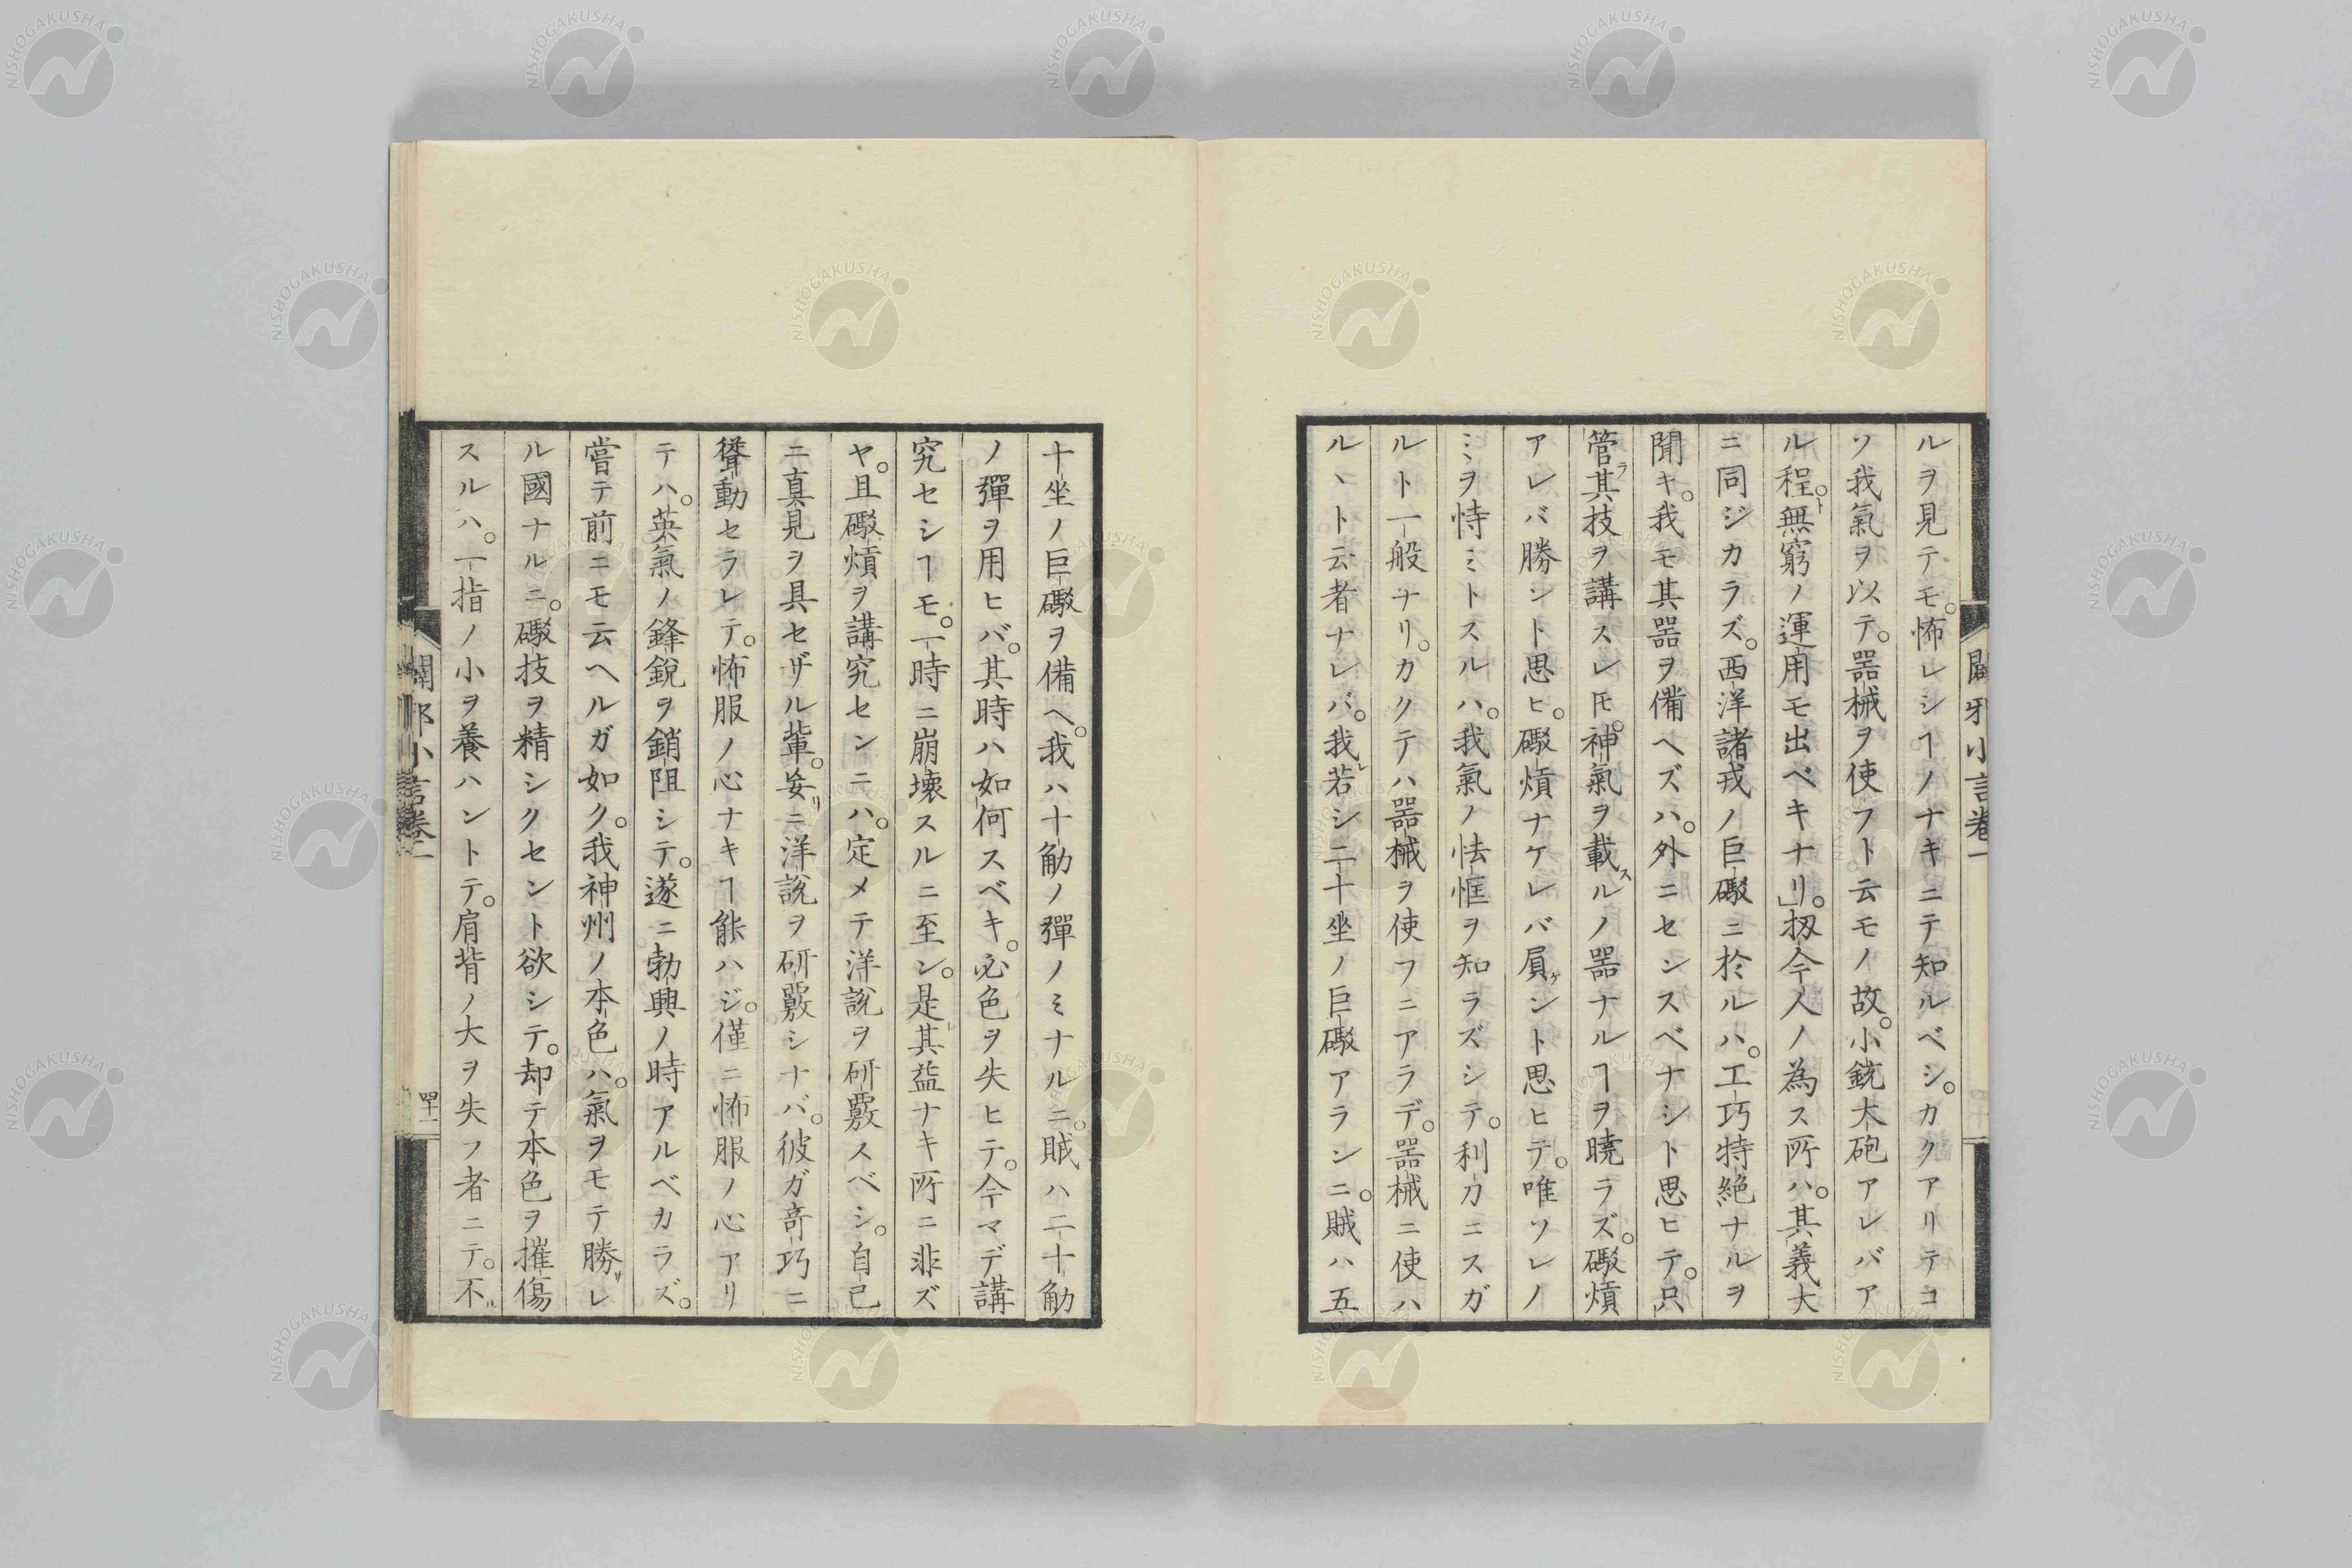 ルヲ見テモ。怖レシヿノナキニテ知ルベシ。カクアリテコ
ソ我氣ヲ以テ。器械ヲ使フト云モノ故。小銃大砲アレバア
ル程。無窮ノ運用モ出ベキナリ」。扨今人ノ為ス所ハ。其義大
ニ同ジカラズ。西洋諸戎ノ巨礮ニ於ルハ。工巧特絶ナルヲ
聞キ。我モ其器ヲ備ヘズハ。外ニセシスベナシト思ヒテ。只
管其技ヲ講スレ𪜈。神氣ヲ載スルノ器ナルヿヲ曉ラズ。礮熕
アレバ勝ント思ヒ。礮熕ナケレバ屓ケント思ヒテ。唯ソレノ
ミヽヲ恃ミトスルハ。我氣ノ怯恇ヲ知ラズシテ。利刀ニスガ
ルト一般ナリ。カクテハ器械ヲ使フニアラデ。器械ニ使ハ
ルヽト云者ナレバ。我レ若シ二十坐ノ巨礮アランニ。賊ハ五
闢邪小言卷一
十坐ノ巨礮ヲ備ヘ。我ハ十觔ノ彈ノミナルニ。賊ハ二十觔
ノ彈ヲ用ヒバ。其時ハ如何スベキ。必色ヲ失ヒテ。今マデ講
究セシヿモ。一時ニ崩壞スルニ至ン。是其益ナキ所ニ非ズ
ヤ。且礮熕ヲ講究センニハ。定メテ洋説ヲ研覈スベシ。自己
ニ真見ヲ具セザル輩。妄リニ洋説ヲ研覈シナバ。彼ガ竒巧ニ
聳動セラレテ。怖服ノ心ナキヿ能ハジ。僅ニ怖服ノ心アリ
テハ。英氣ノ鋒銳ヲ銷阻シテ。遂ニ勃興ノ時アルベカラズ。
嘗テ前ニモ云ヘルガ如ク。我神州ノ本色ハ。氣ヲモテ勝リレ
ル國ナルニ。礮技ヲ精シクセント欲シテ。却テ本色ヲ摧傷
スルハ。一指ノ小ヲ養ハントテ。肩背ノ大ヲ失フ者ニテ。不
闢邪小言卷一
四十二